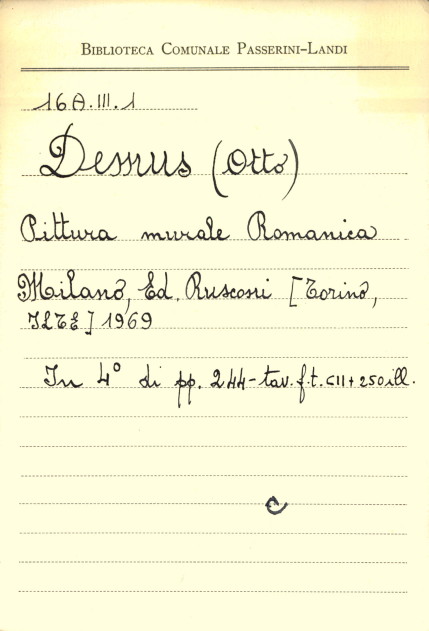 BIBLIOTECA COMUNALE PASSERINI-LANDI
16A.III.1
Demus (Otto)
Pittura murale Romanica
Milano, Ed. Rusconi [Torino,
ILTE] 1969
In 4° di pp. 244-tav. f.t. CII+250 ill.
C